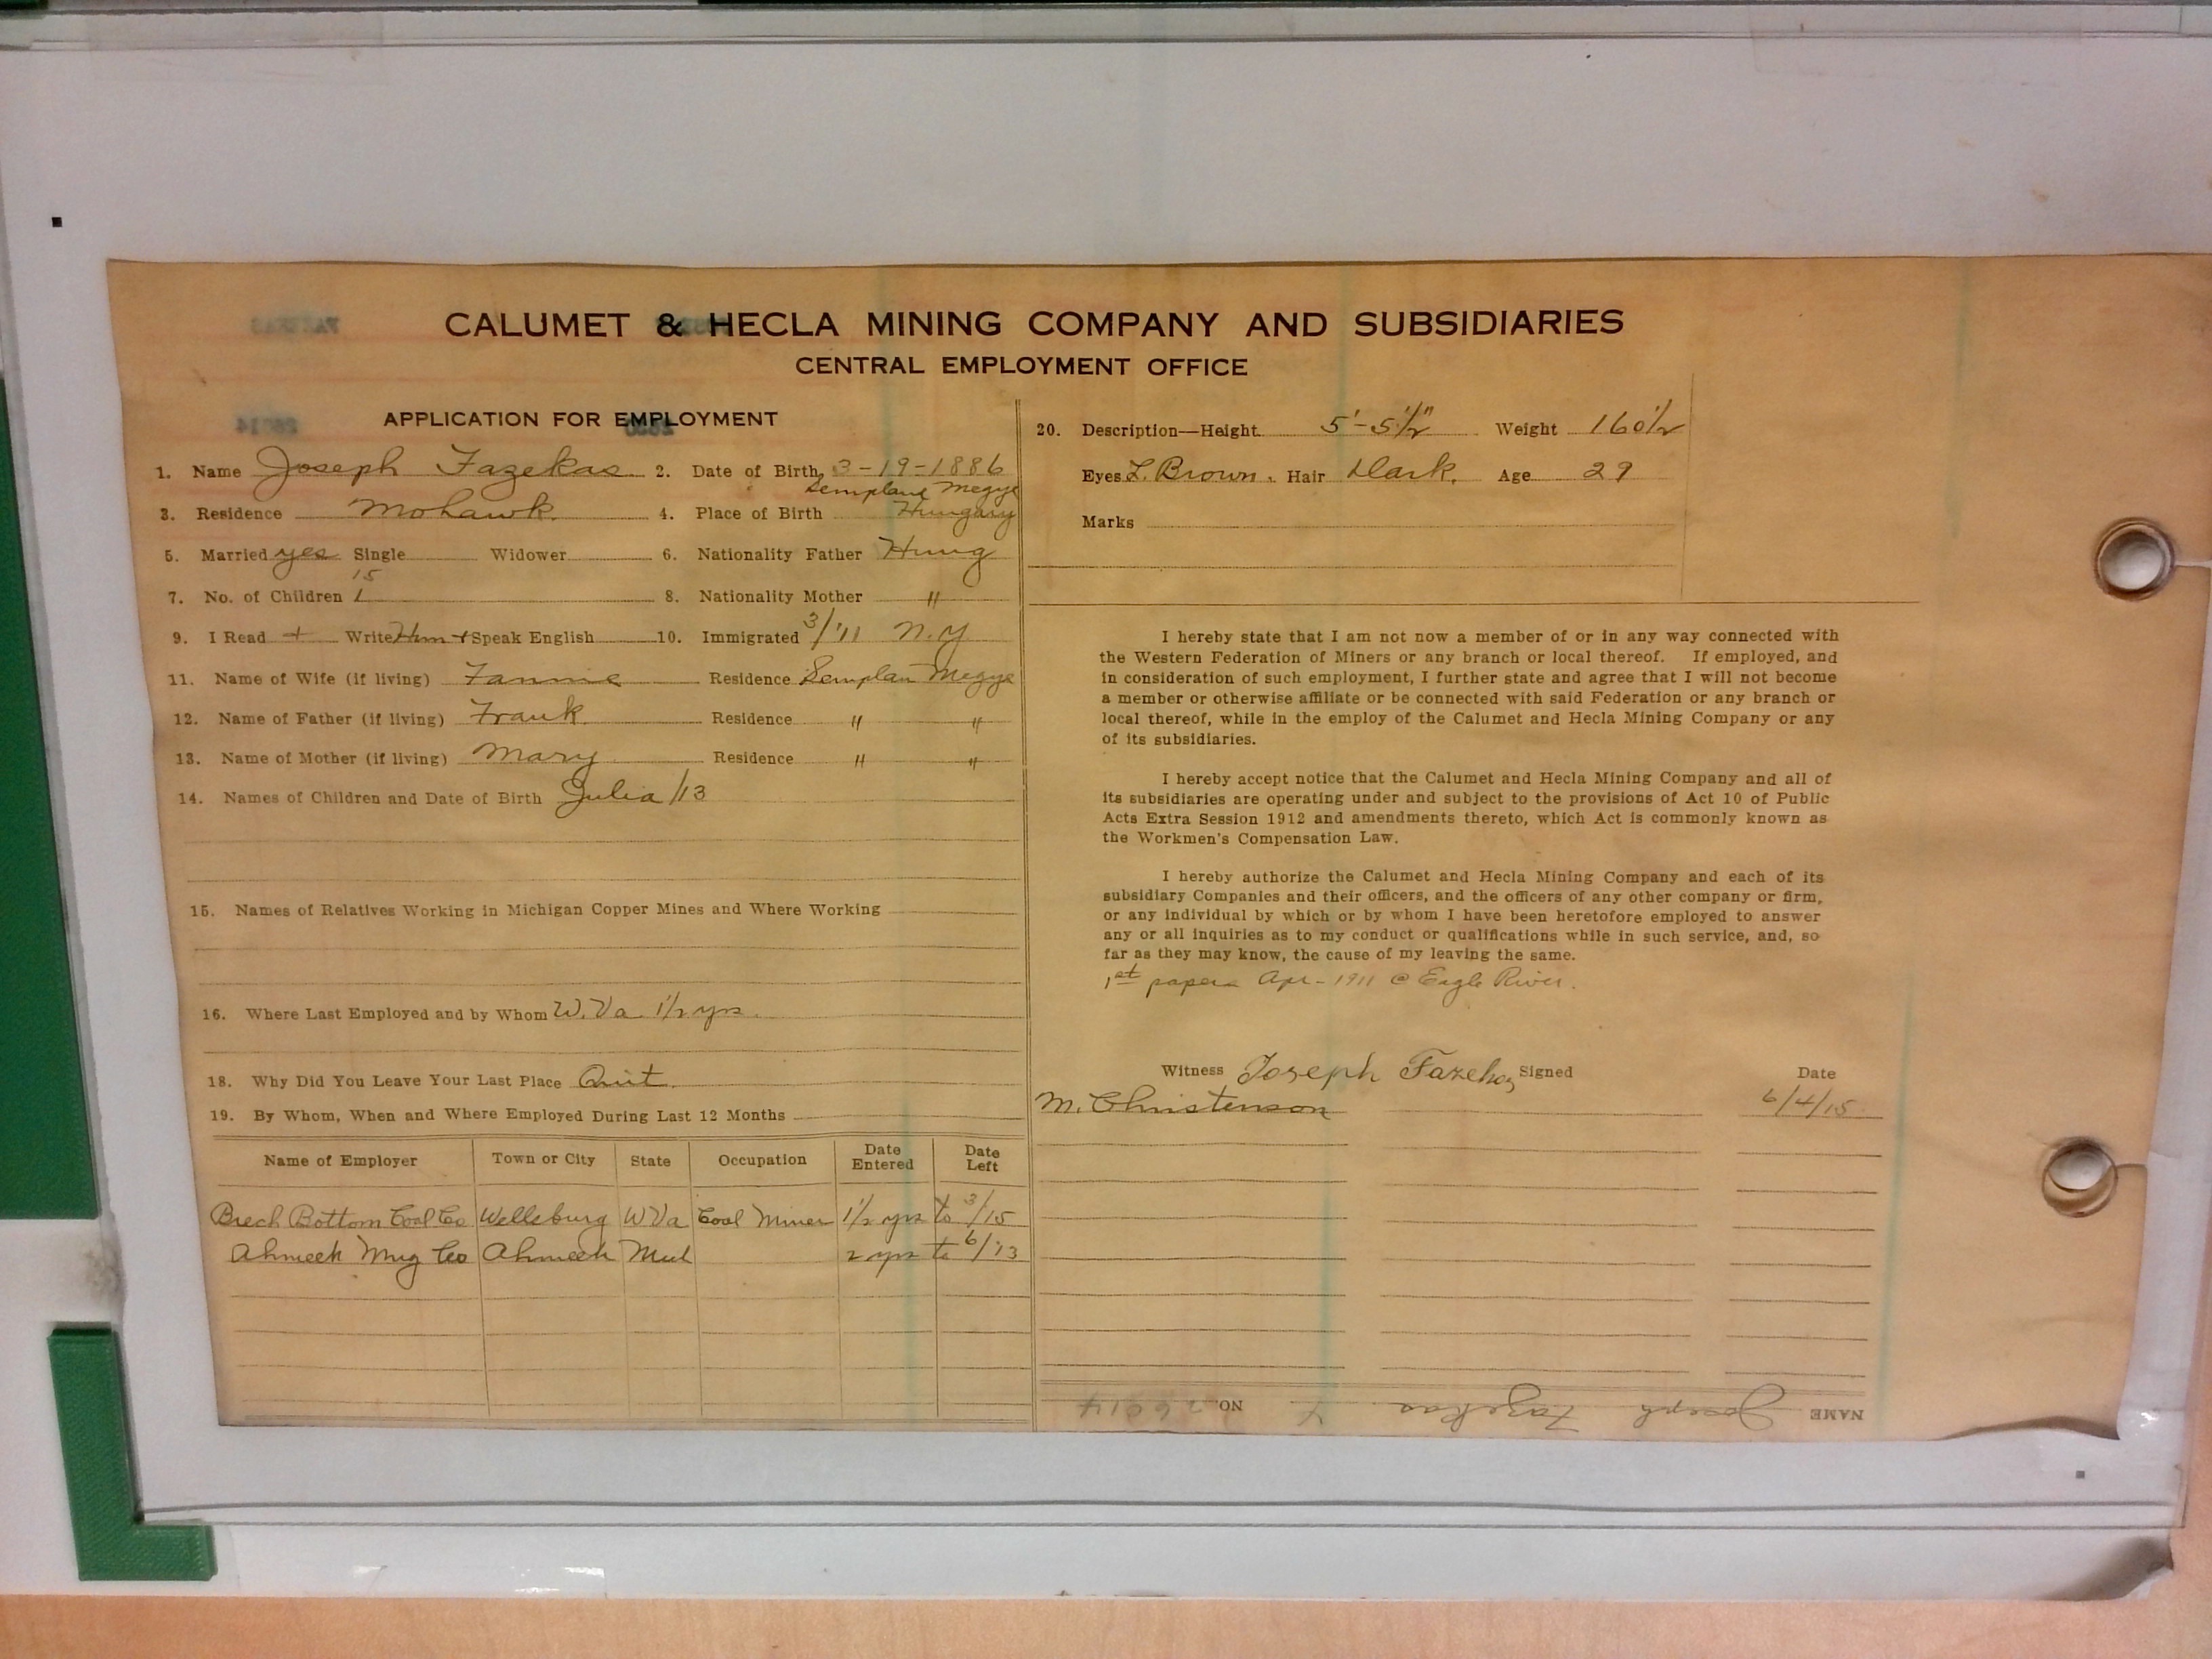 CALUMET & HECLA MINING COMPANY AND SUBSIDIARIES
CENTRAL EMPLOYMENT OFFICE
APPLICATION FOR EMPLOYMENT
1. Name Joseph Fazekas 2. Date of Birth 3-19-1886
Semplane Megye
3. Residence Mohawk. 4. Place of Birth Hungary
5. Married yes Single Widower 6. Nationality Father Hung
15
7. No. of Children 1 8. Nationality Mother "
9. I Read + Write Hun + Speak English 10. Immigrated 3/'11 N.Y.
11. Name of Wife (if living) Fannie Residence Semplan Megye
12. Name of Father (if living) Frank. Residence " "
13. Name of Mother (if living) Mary Residence " "
14. Names of Children and Date of Birth Julia /13
15. Names of Relatives Working in Michigan Copper Mines and Where Working
16. Where Last Employed and by Whom W. Va. 1½ yrs.
18. Why Did You Leave Your Last Place Quit.
19. By Whom, When and Where Employed During Last 12 Months
Name of Employer Town or City State Occupation Date Entered Date Left
Beech Bottom Coal Co Wellsburg W Va Coal Miner 1½ yrs to 3/15
Ahmeek Mng Co Ahmeek Mich 2 yrs to 6/'13
20. Description—Height 5'-5½" Weight 160½
Eyes L. Brown. Hair Dark. Age 29
Marks
I hereby state that I am not now a member of or in any way connected with
the Western Federation of Miners or any branch or local thereof. If employed, and
in consideration of such employment, I further state and agree that I will not become
a member or otherwise affiliate or be connected with said Federation or any branch or
local thereof, while in the employ of the Calumet and Hecla Mining Company or any
of its subsidiaries.
I hereby accept notice that the Calumet and Hecla Mining Company and all of
its subsidiaries are operating under and subject to the provisions of Act 10 of Public
Acts Extra Session 1912 and amendments thereto, which Act is commonly known as
the Workmen's Compensation Law.
I hereby authorize the Calumet and Hecla Mining Company and each of its
subsidiary Companies and their officers, and the officers of any other company or firm,
or any individual by which or by whom I have been heretofore employed to answer
any or all inquiries as to my conduct or qualifications while in such service, and, so
far as they may know, the cause of my leaving the same.
1st papers Apr-1911 @ Eagle River.
Witness Joseph Fazekas Signed Date
M. Christenson 6/4/15
NAME Joseph Fazekas F NO. 26614